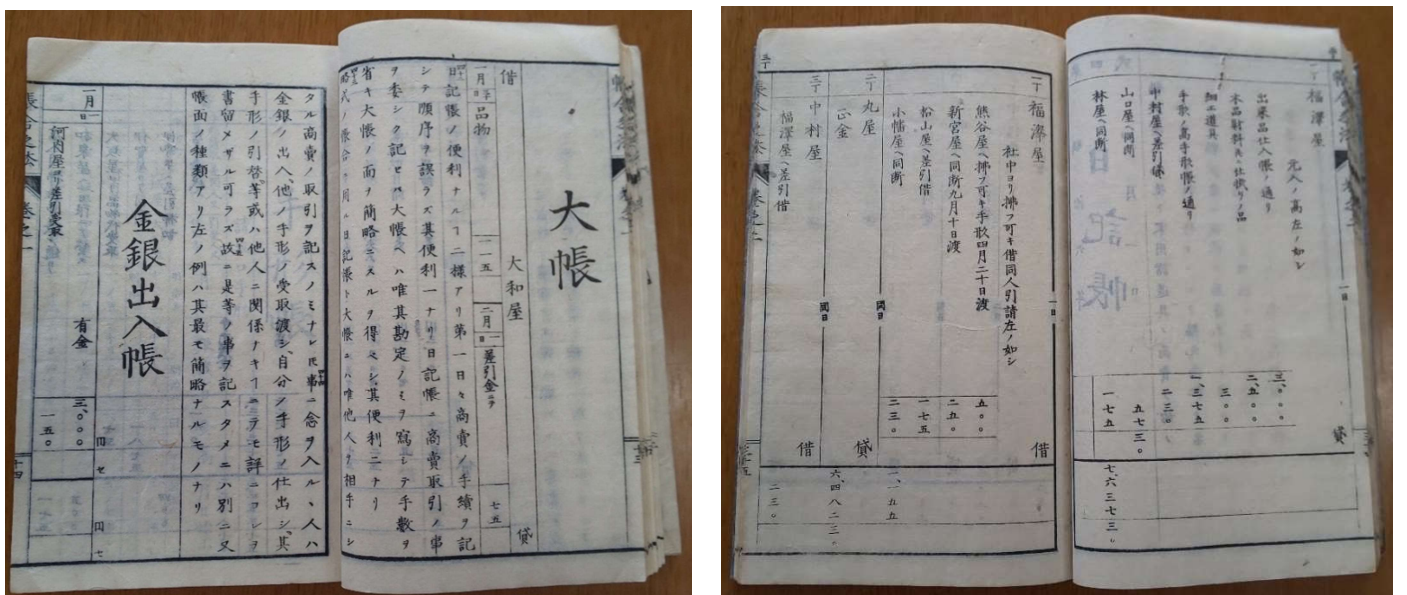 大帳
借 大和屋 貸
一月 一日 品物 一一五 二月 一日 差引金ニテ 七五
日記帳ノ便利ナルヿ二様アリ第一日々商賣ノ手續ヲ記
シテ順序ヲ誤ラズ其便利一ナリ日記帳ニ商賣取引ノ事
ヲ委シク記セバ大帳ヘハ唯其勘定ノミヲ寫シテ手數ヲ
省キ大帳ノ面ヲ簡略ニスルヲ得ベシ其便利二ナリ
略式ノ帳合ニ用ル日記帳ト大帳ニハ唯他人ヲ相手ニシ
タル商賣ノ取引ヲ記スノミナレ𪜈事ニ念ヲ入ルヽ人ハ
金銀ノ出入、他ノ手形ノ受取渡シ、自分ノ手形ノ仕出シ、其
手形ノ引替等或ハ他人ニ関係ナキヿニテモ詳ニコレヲ
書留メザル可ラズ故ニ是等ノ事ヲ記スタメニハ別ニ又
帳面ノ種類アリ左ノ例ハ其最モ簡略ナルモノナリ
金銀出入帳
円 セ 円 セ
一月 一日 有金 三、〇〇〇
河内屋ヨリ差引受取 一五〇
帳合之法 巻之一 十四
一日
一丁 福澤屋 貸
元入ノ高左ノ如シ
出来品仕入帳ノ通リ 三、〇〇〇
木品財料 二、五〇〇
細工道具 三〇〇
手形ノ高手形帳ノ通リ 一、三七五
中村屋ヘ差引貸 二三〇
山口屋ヘ同断 五七三〇
林屋ヘ同断 一七五 七、六三七三〇
一日
一丁 福澤屋 借
社中ヨリ拂フ可キ借同人引請左ノ如シ
熊谷屋ヘ拂フ可キ手形四月二十日渡 五〇〇
新宮屋ヘ同断九月十日渡 二五〇
松山屋ヘ差引借 一七五
小幡屋ヘ同断 二三〇 一、一五五
同日
二丁 丸屋 貸
正金 六、四八二三〇
同日
三丁 中村屋 借
福澤屋ヘ差引借 二三〇
帳合之法 巻之二